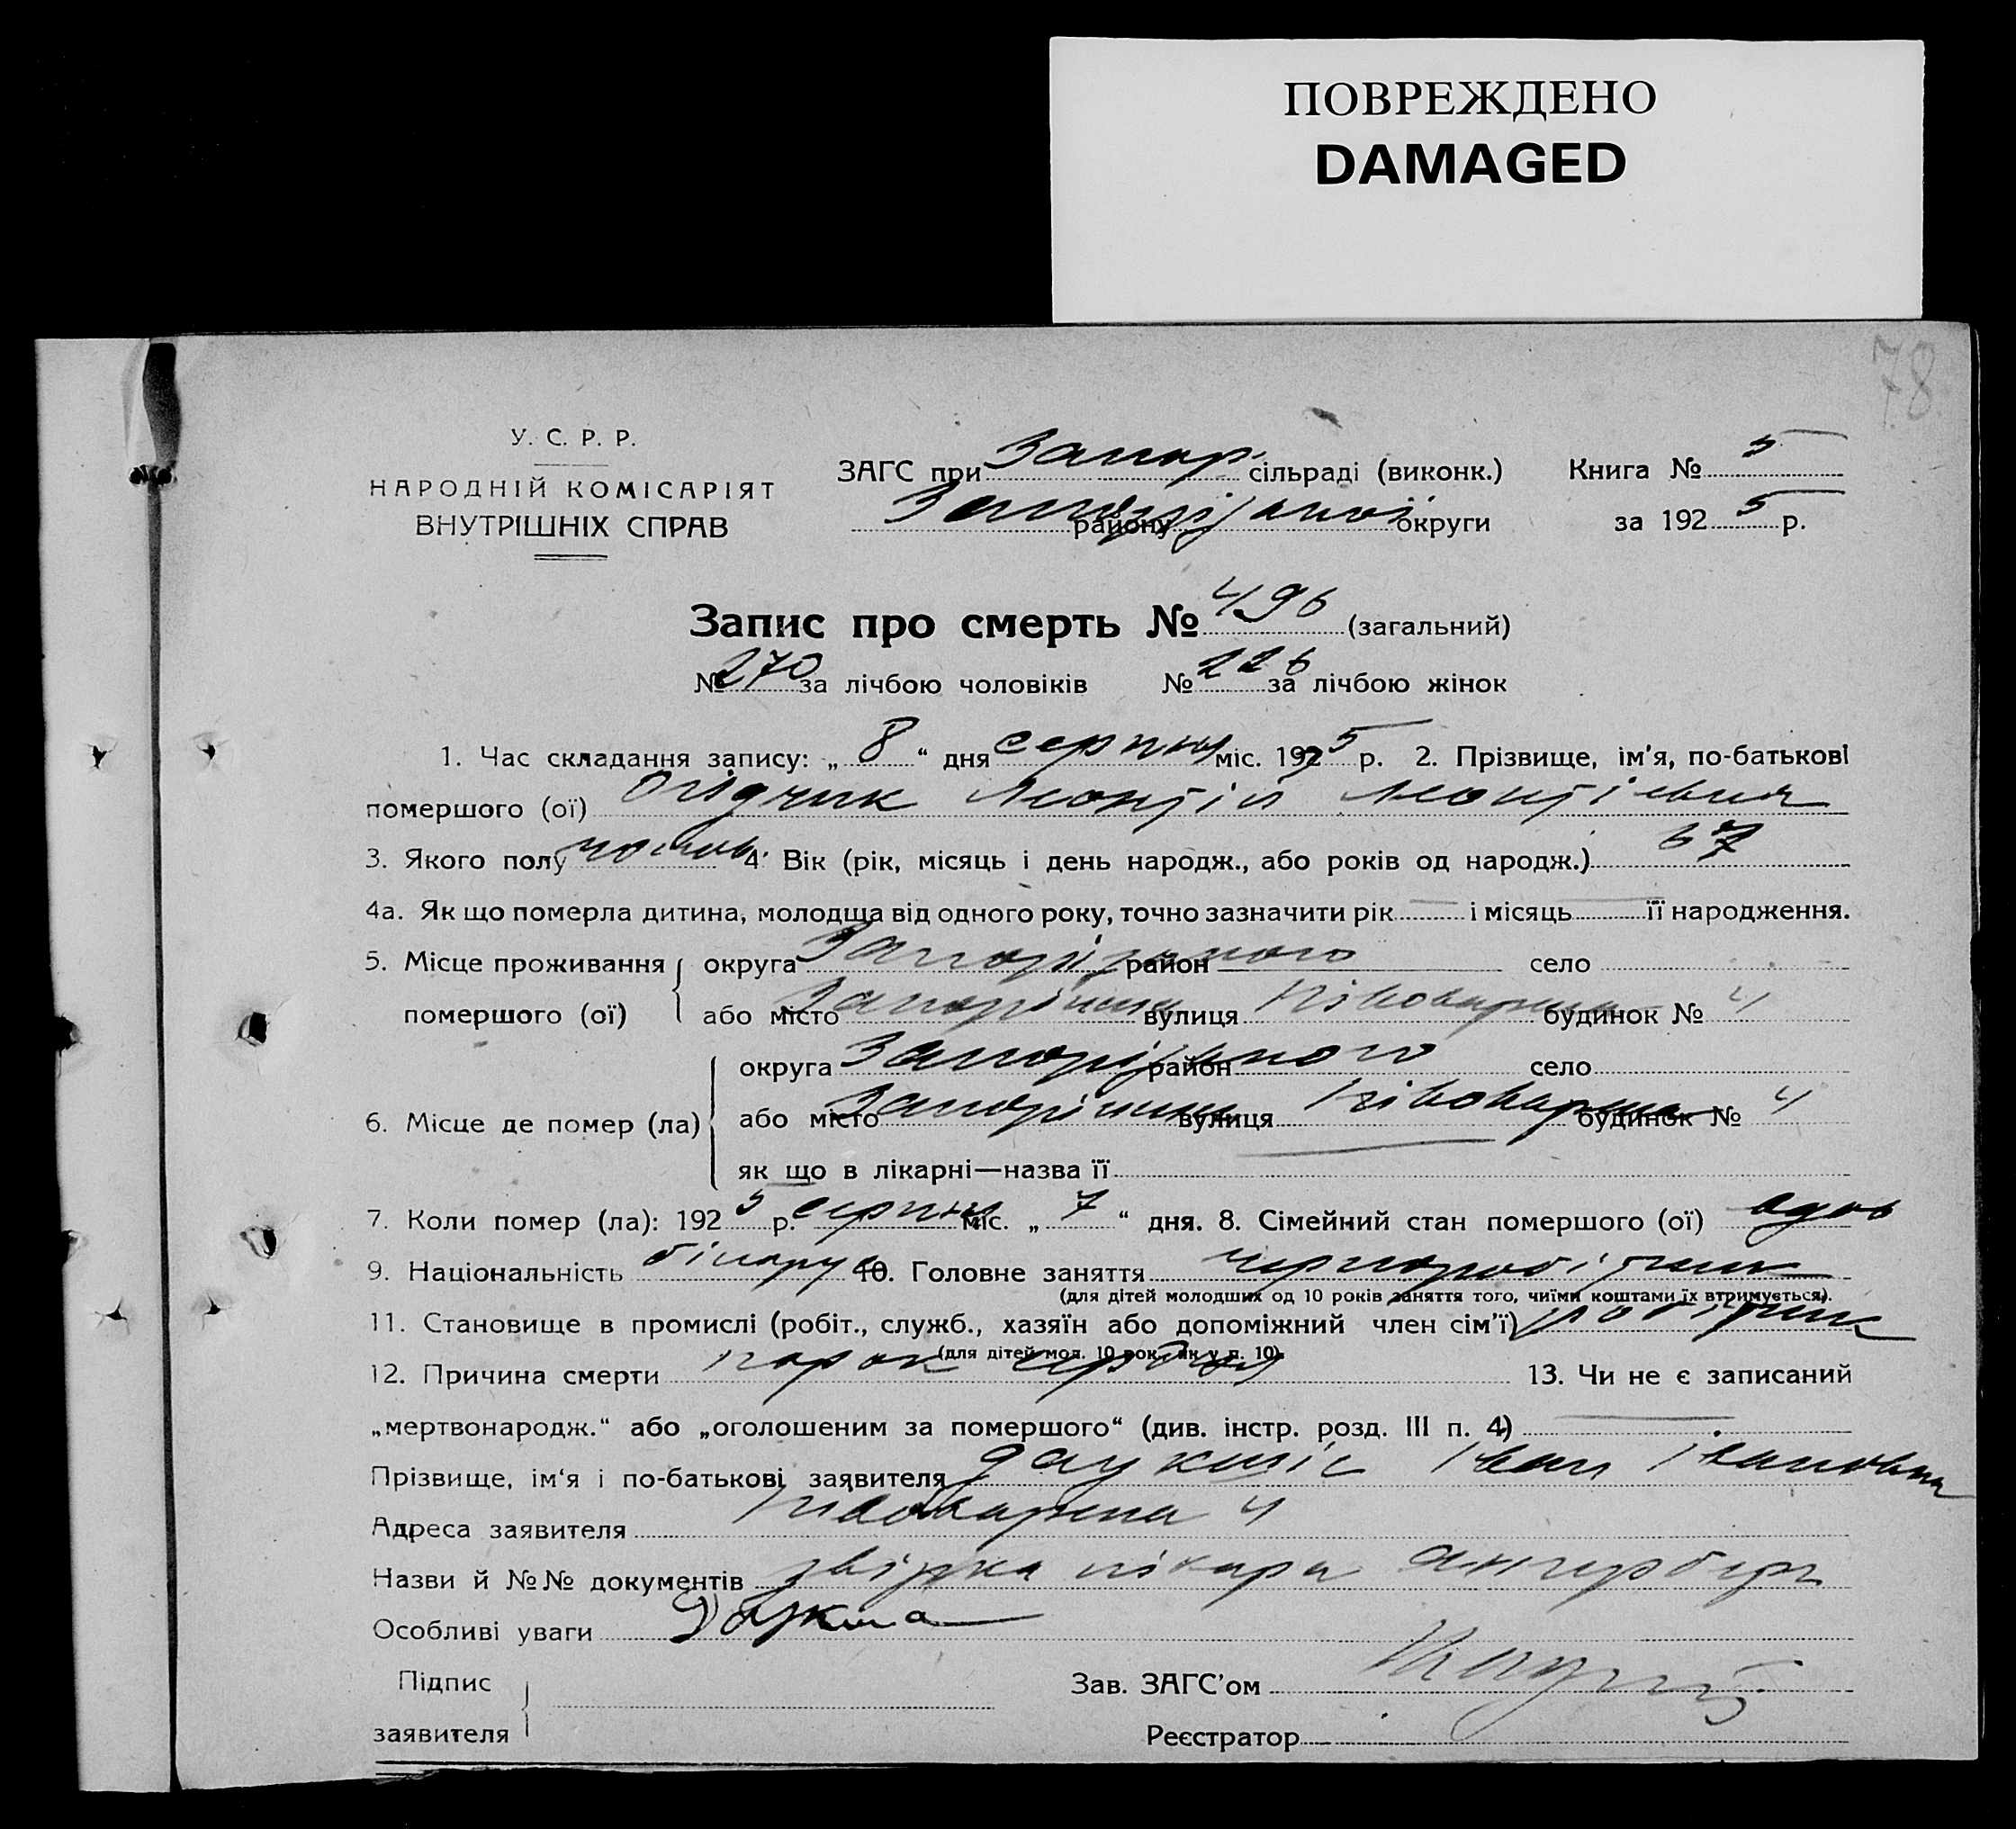 ПОВРЕЖДЕНО
DAMAGED
78
У. С. Р. Р.
НАРОДНІЙ КОМІСАРІЯТ
ВНУТРІШНІХ СПРАВ
ЗАГС при Запор. сільраді (виконк.)
району округи
Книга № 5
за 1925 р.
Запис про смерть № 496 (загальний)
№ 270 за лічбою чоловіків № 226 за лічбою жінок
1. Час складання запису: „ 8 “ дня серпня міс. 1925 р. 2. Прізвище, ім'я, по-батькові
помершого (ої) Леонтій Леонтієвич
3. Якого полу чолов. 4. Вік (рік, місяць і день народж., або років од народж.) 67
4а. Як що померла дитина, молодша від одного року, точно зазначити рік — і місяць — її народження.
5. Місце проживання помершого (ої) округа Запорізького район село
або місто вулиця будинок № 4
6. Місце де помер (ла) округа Запорізького район село
або місто вулиця будинок № 4
як що в лікарні—назва її
7. Коли помер (ла): 1925 р. серпня міс. „ 7 “ дня. 8. Сімейний стан помершого (ої) вдов
9. Національність білорус 10. Головне заняття чорноробітник
(для дітей молодших од 10 років заняття того, чиїми коштами їх втримується).
11. Становище в промислі (робіт., служб., хазяїн або допоміжний член сім'ї) робітник
(для дітей мол. 10 рок., як у п. 10).
12. Причина смерти порок сердця 13. Чи не є записаний
„мертвонародж.“ або „оголошеним за помершого“ (див. інстр. розд. III п. 4) —
Прізвище, ім'я і по-батькові заявителя Іван Іванович
Адреса заявителя 4
Назви й №№ документів лікаря
Особливі уваги
Підпис
заявителя
Зав. ЗАГС'ом
Реєстратор